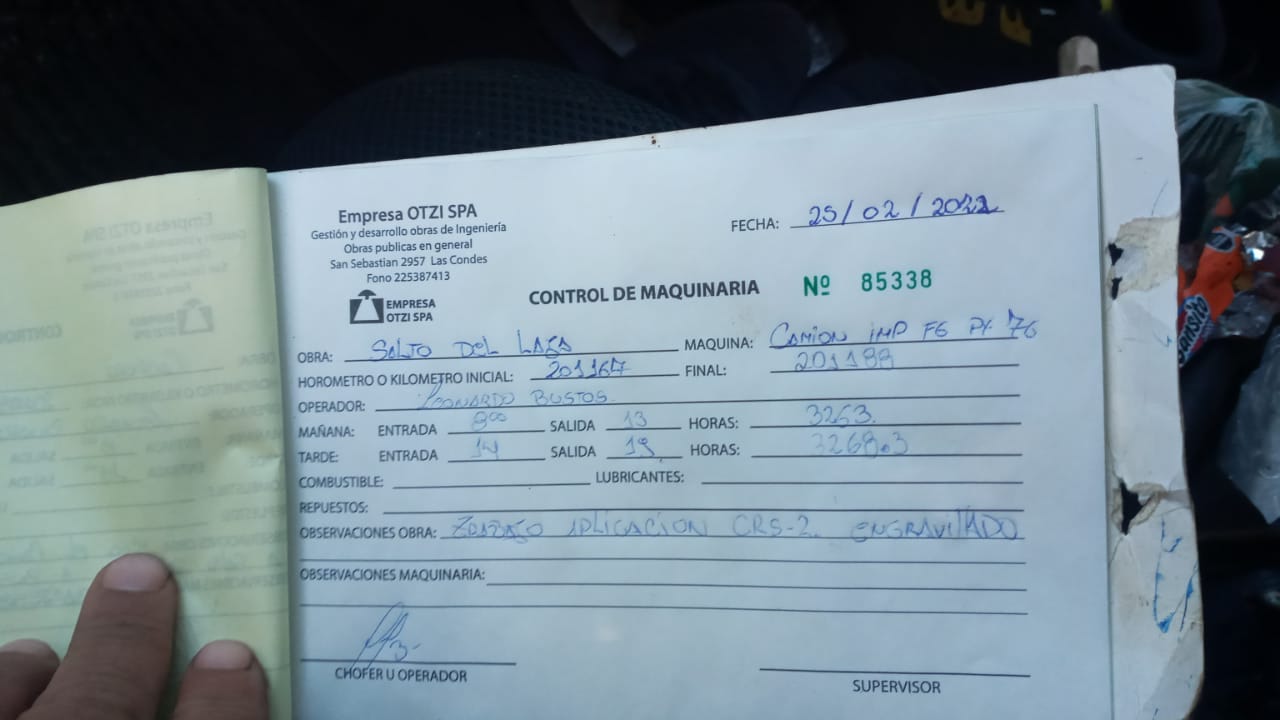 Empresa OTZI SPA
Gestión y desarrollo obras de Ingeniería
Obras publicas en general
San Sebastian 2957 Las Condes
Fono 225387413
EMPRESA
OTZI SPA
FECHA: 25/02/2022
CONTROL DE MAQUINARIA Nº 85338
OBRA: SALTO DEL LAJA MAQUINA: CAMION IMP FG 76
HOROMETRO O KILOMETRO INICIAL: 201167 FINAL: 201188
OPERADOR: LEONARDO BUSTOS
MAÑANA: ENTRADA 8:00 SALIDA 13 HORAS: 3263.
TARDE: ENTRADA 14 SALIDA 19. HORAS: 3268.3
COMBUSTIBLE: LUBRICANTES:
REPUESTOS:
OBSERVACIONES OBRA: APLICACION CRS-2. ENGRAVILLADO
OBSERVACIONES MAQUINARIA:
CHOFER U OPERADOR
SUPERVISOR